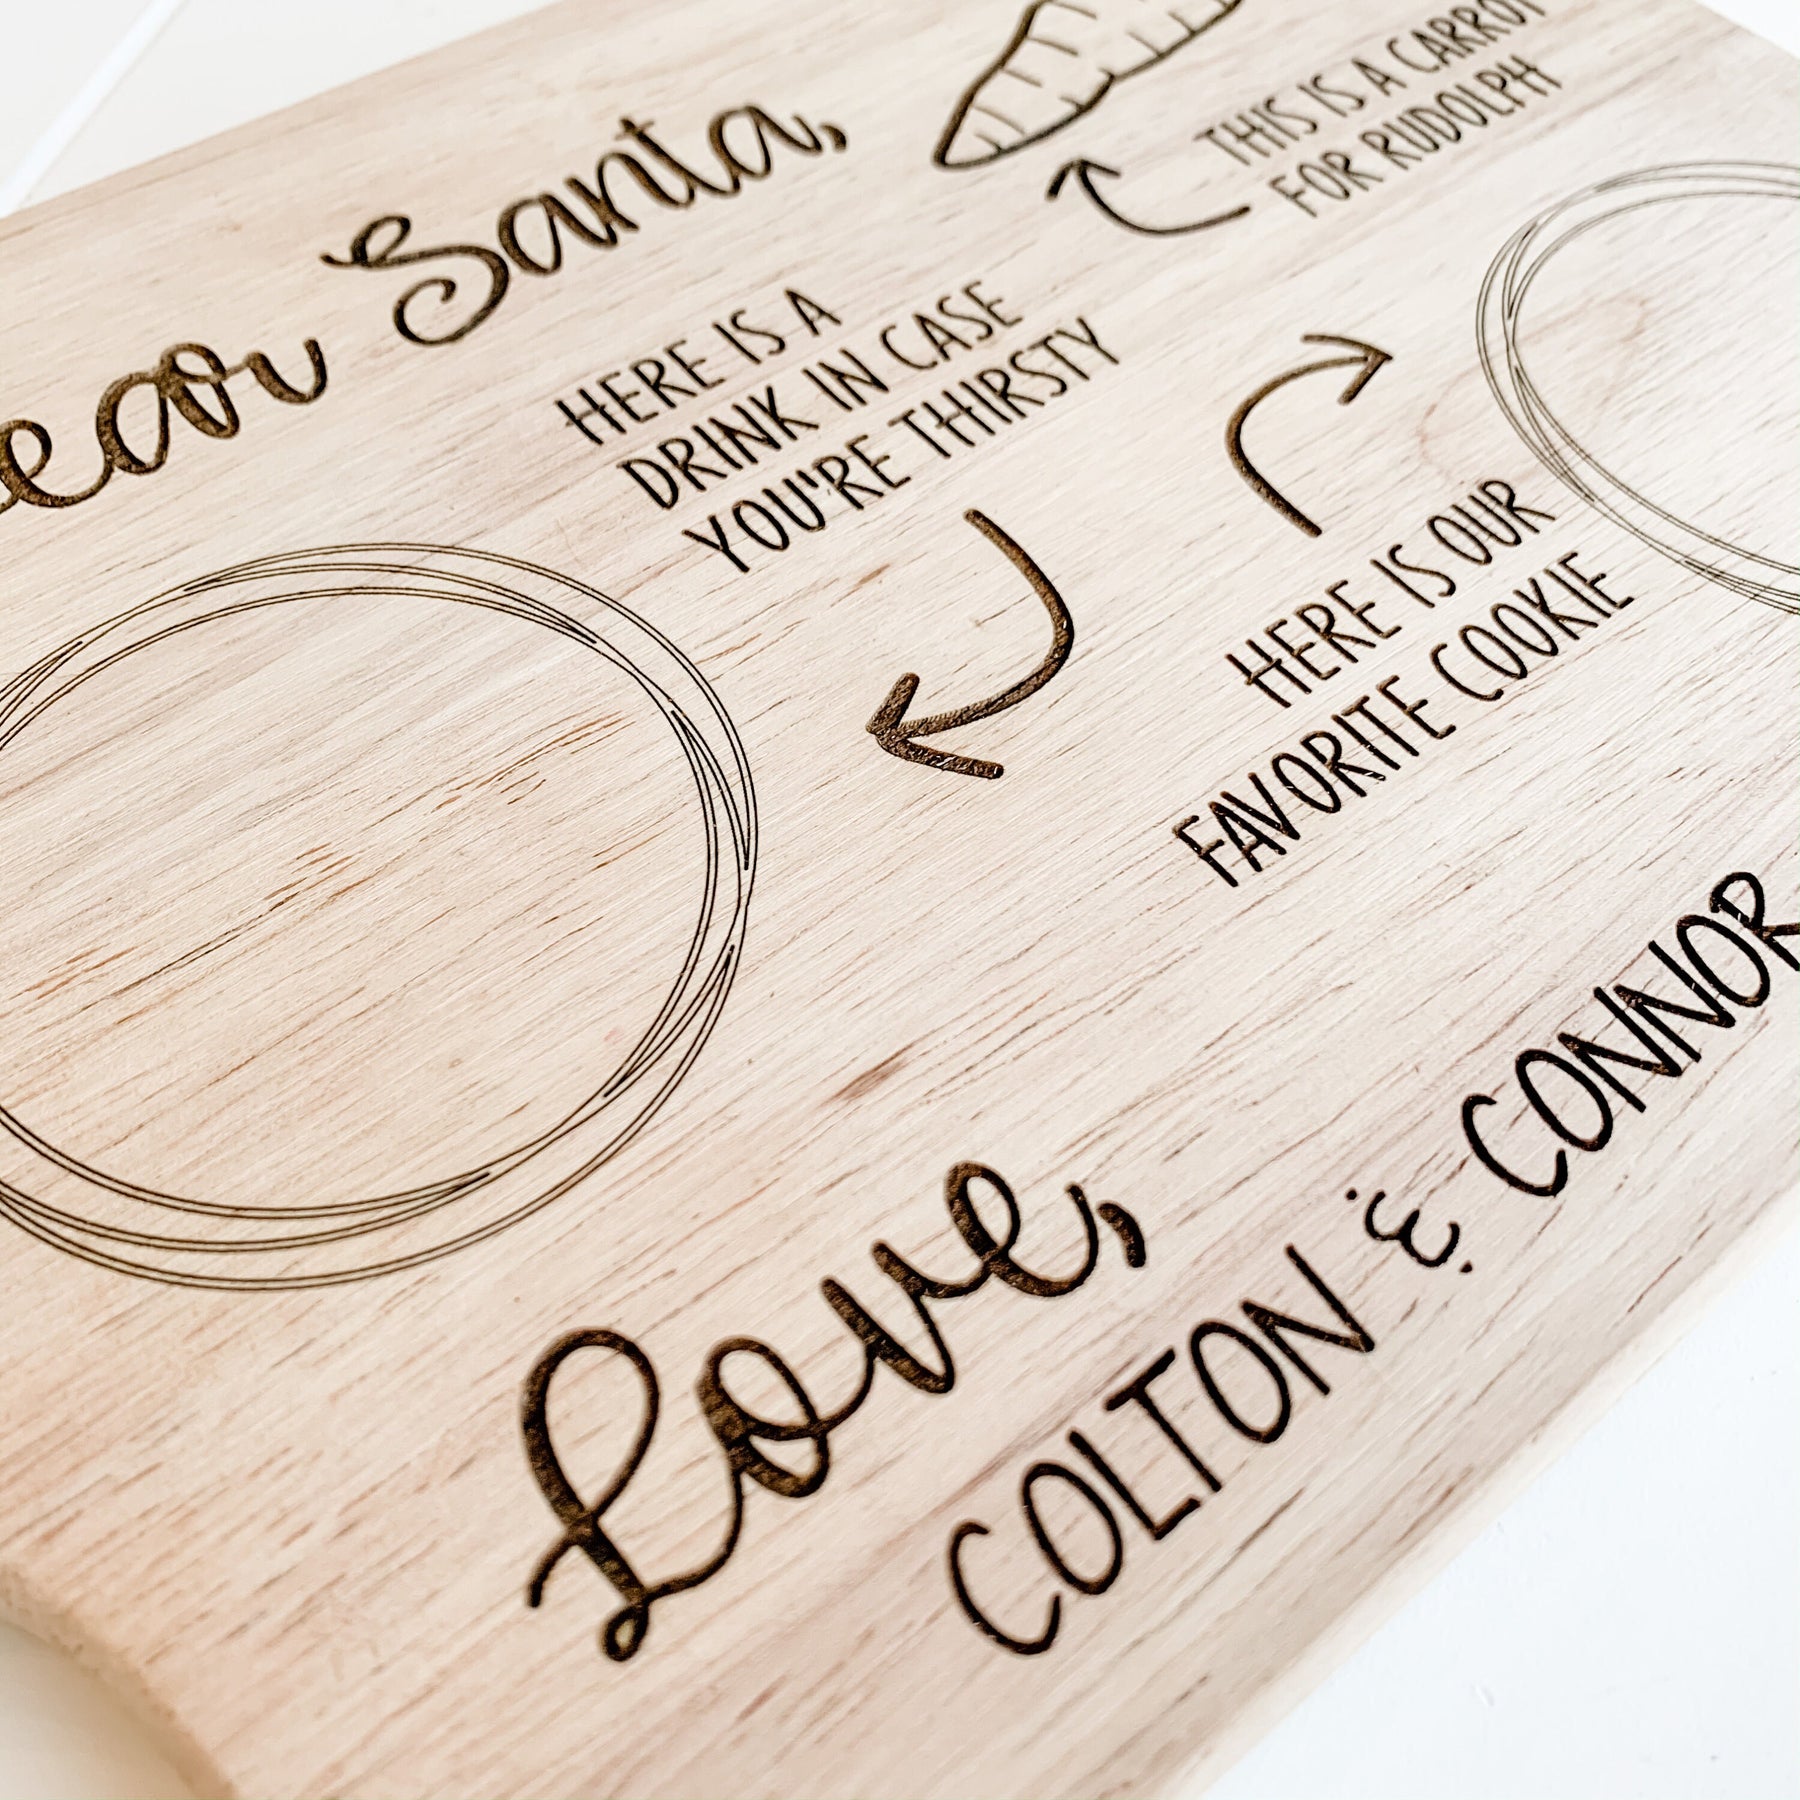 ear Santa,
THIS IS A CARROT
FOR RUDOLPH
HERE IS A
DRINK IN CASE
YOU'RE THIRSTY
HERE IS OUR
FAVORITE COOKIE
Love,
COLTON & CONNOR